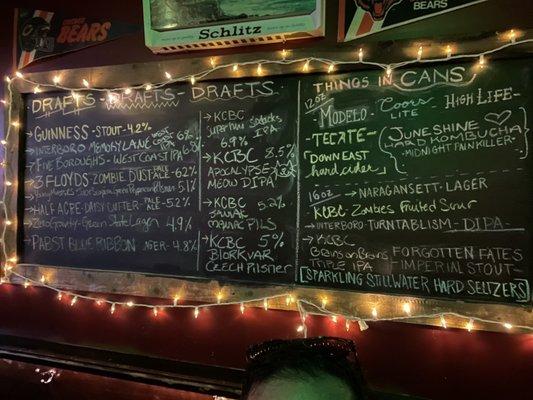 BEARS
Schlitz
BEARS
DRAFTS - DRAFTS - DRAFTS
→ GUINNESS - STOUT - 4.2%
→ INTERBORO MEMORY LANE
→ FIVE BOROUGHS - WEST COAST IPA
→ 3 FLOYDS ZOMBIE DUST - PALE ALE - 6.2%
5.1%
→ HALF ACRE - DAISY CUTTER - PALE - 5.2%
→ Zero Gravity - Green State Lager 4.9%
→ PABST BLUE RIBBON LAGER - 4.8%
→ KCBC
IPA
6.9%
→ KCBC 8.5%
APOCALYPSE
MEOW DIPA
→ KCBC 5.2%
MANIAC PILS
→ KCBC 5%
CZECH PILSNER
THINGS IN CANS.
12oz
→ MODELO - Coors LITE HIGH LIFE -
- TECATE -
DOWN EAST
hard cider
JUNESHINE
HARD KOMBUCHA
- MIDNIGHT PAINKILLER -
16oz
→ NARAGANSETT - LAGER
KCBC Zombies Fruited Sour
→ INTERBORO TURNTABLISM - DIPA
→ KCBC
Brains on Brains
TRIPLE IPA
FORGOTTEN FATES
- IMPERIAL STOUT -
SPARKLING STILLWATER HARD SELTZERS